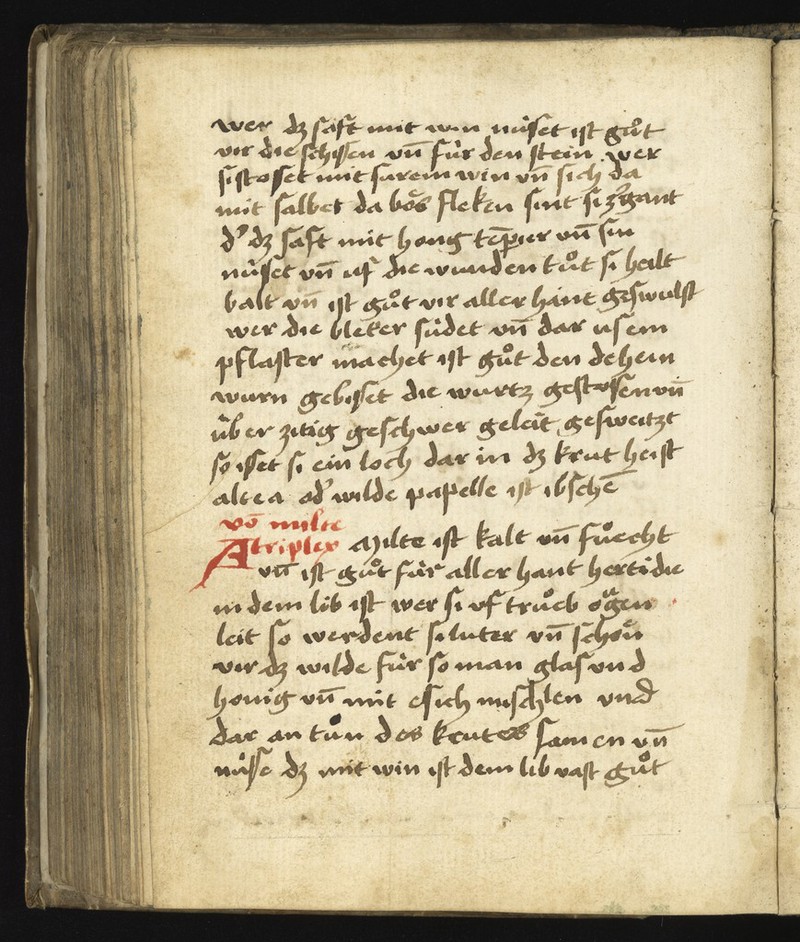 wer dz saft mit win nüset ist gůt
vir die schissen vn̄ für den stein wer
si stosset mit surem win vn̄ sich da
mit salbet da bös fleken sint si zergant
d' dz saft mit hong tēpier vn̄ sin
nüset vn̄ uf die wunden tůt si heilt
balt vn̄ ist gůt vir aller hant geswulst
wer die bleter südet vn̄ dar us ein
pflaster machet ist gůt den dehein
wurn gebisset die wurtz gestossen vn̄
über zitig geschwer geleit gesweitzt
so isset si ein loch dar in dz krut heist
altea od' wilde papelle ist ibschē
vō milte
Atriplex Milte ist kalt vn̄ fůecht
vn̄ ist gůt für aller hant hertidie
in dem lib ist wer si vf trůeb ögen
leit so werdent si luter vn̄ schön
vir dz wilde für so man glas vnd
honig vn̄ mit esich mischlen vnd
dar an tůn des krutes samen vn̄
nüsse dz mit win ist dem lib vast gůt